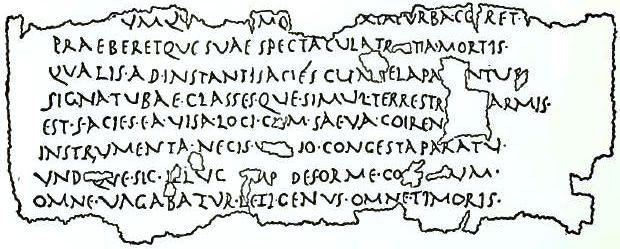 PRAEBERETQVE SVAE SPECTACVLA TR TIA MORTIS·
QVALIS·AD·INSTANTIS ACIÉS CVM TELA PA NTVR
SIGNA TVBAE·CLASSES·QVE·SIMVL·TERRESTR ARMIS·
EST·FACIES·EA·VISA·LOCI·CVM·SAEVA·COIREN
INSTRVMENTA·NECIS· O·CONGESTA PARATV·
VND VE·SIC·ILLVC DEFORME·CO VM·
OMNE·VAGABATVR·LETI GENVS·OMNE TIMORIS·